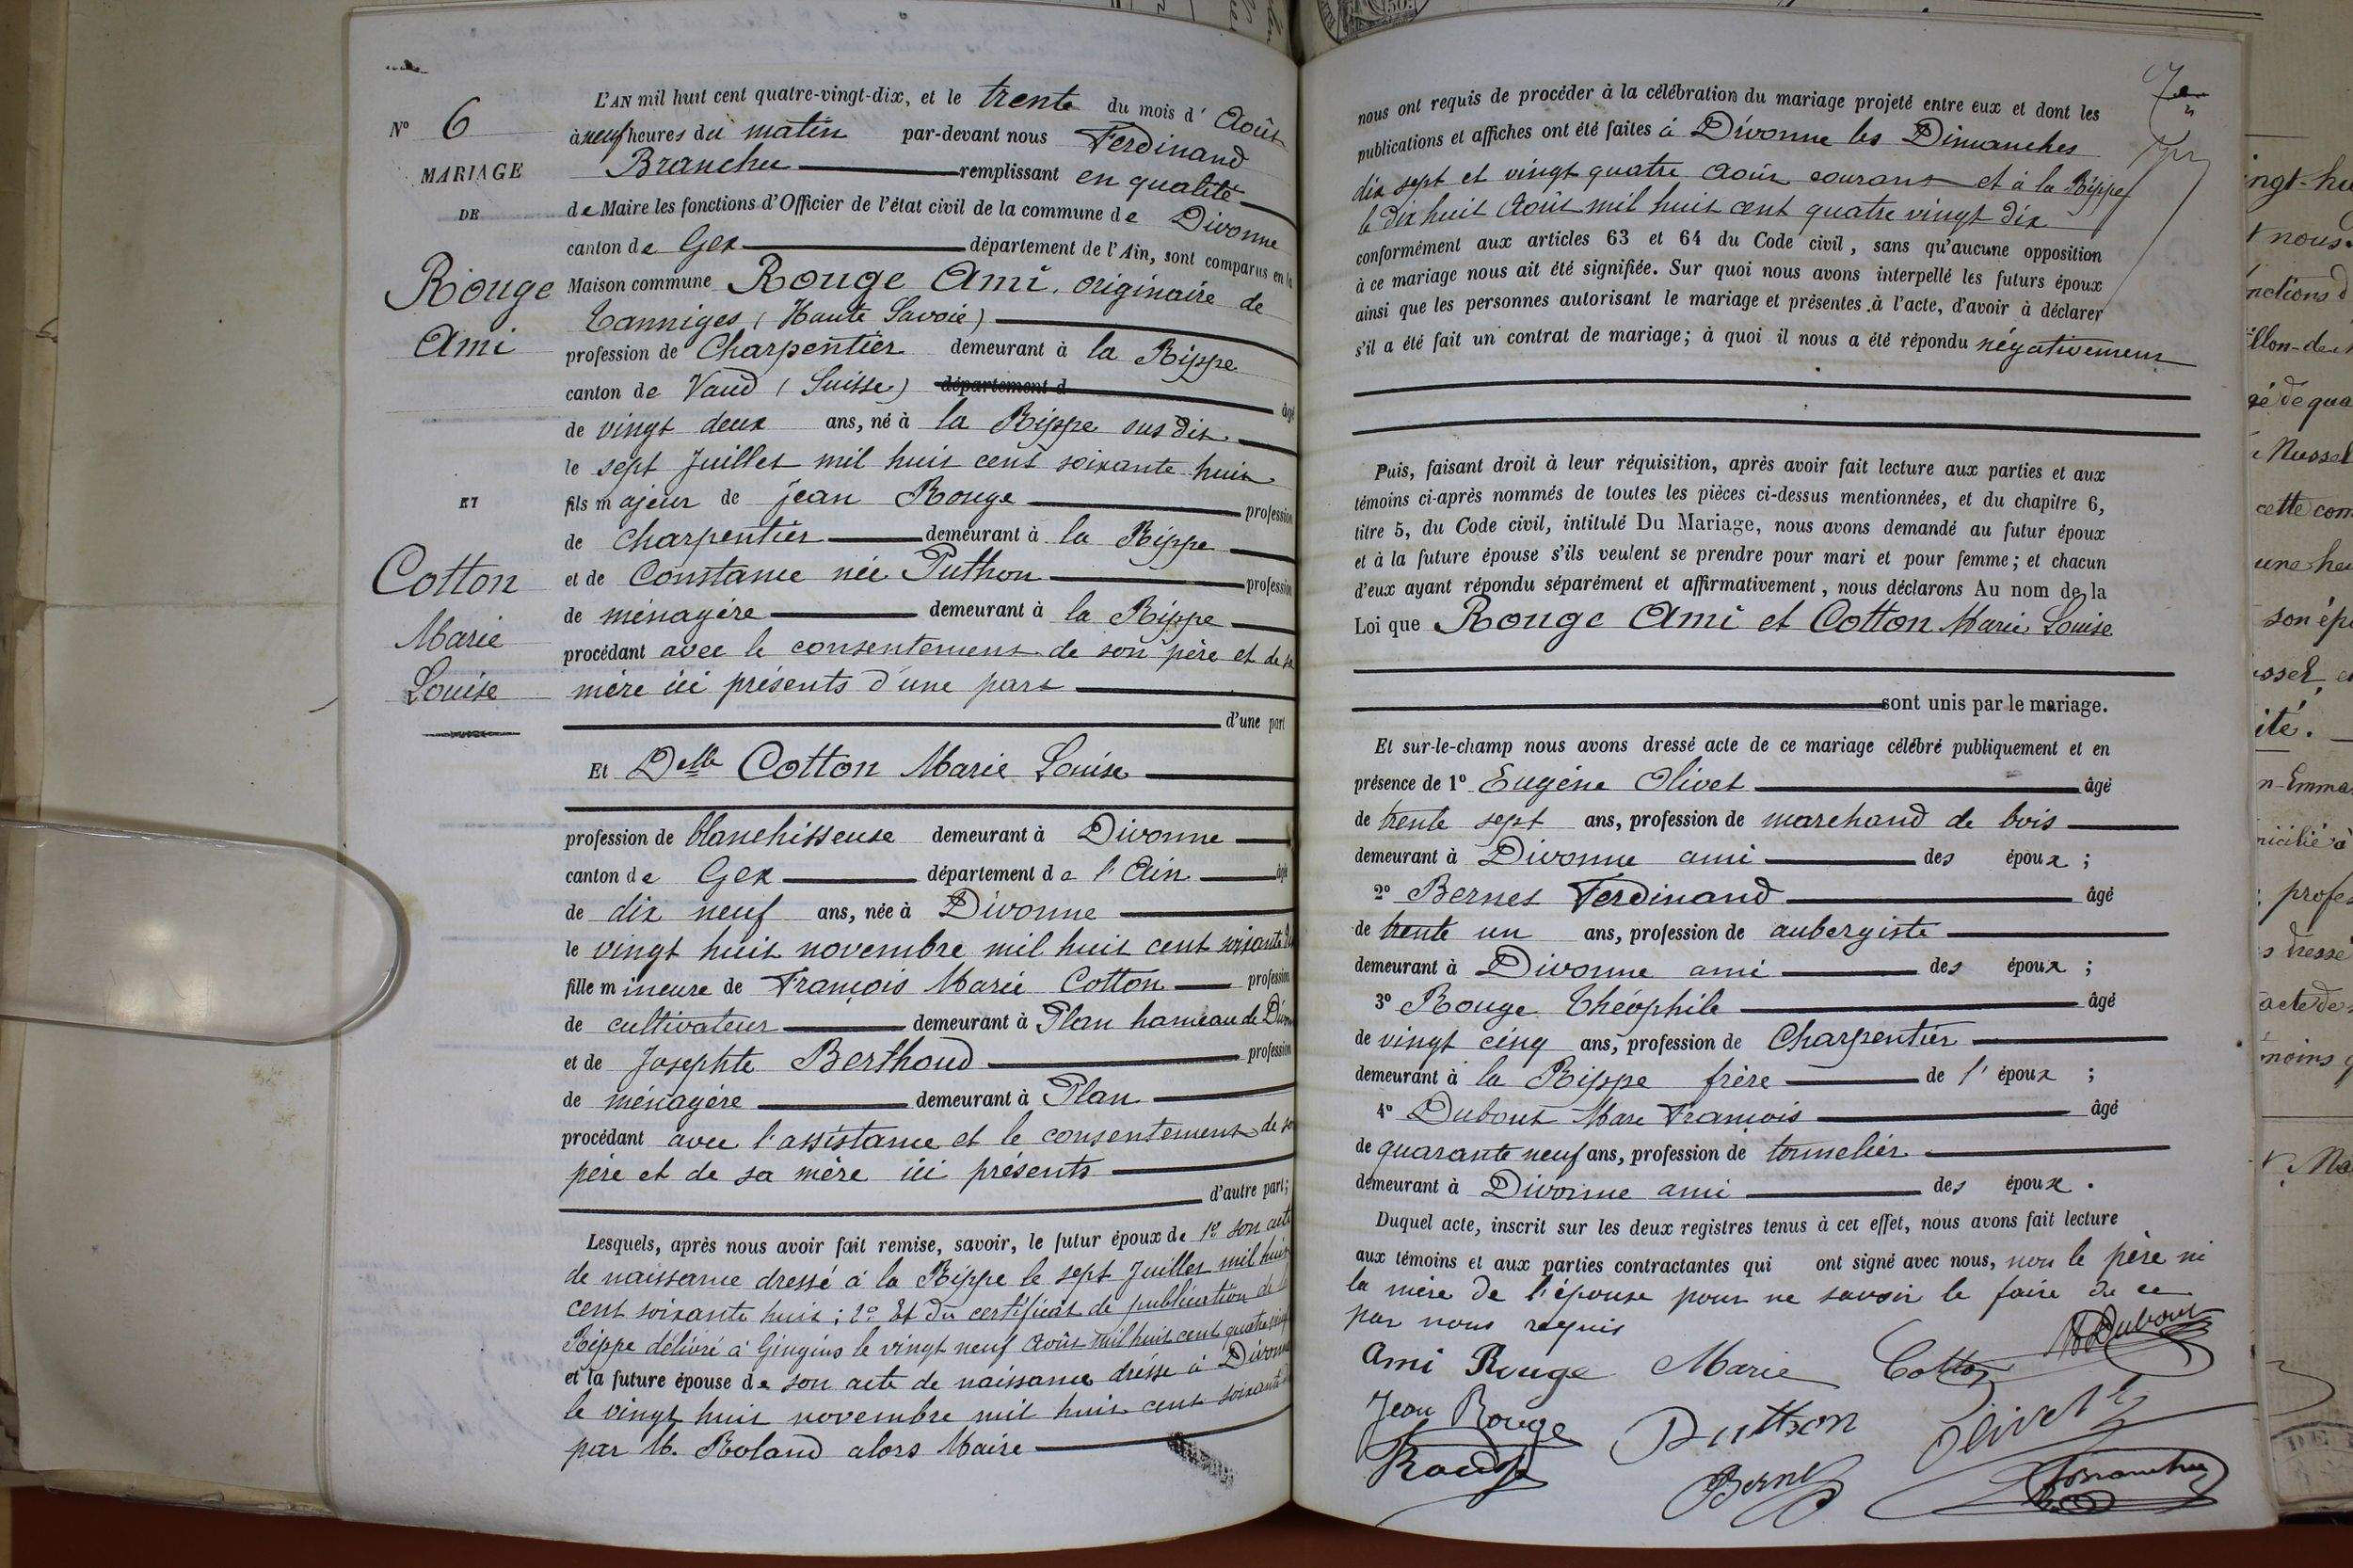 N° 6
MARIAGE
DE
Rouge
Ami
ET
Cotton
Marie
Louise
L'AN mil huit cent quatre-vingt-dix, et le trente du mois d' Août
à neuf heures du matin par-devant nous Ferdinand
Branchu remplissant en qualité
de Maire les fonctions d'Officier de l'état civil de la commune de Divonne
canton de Gex département de l'Ain, sont comparus en la
Maison commune Rouge Ami, originaire de
Tanniges (Haute Savoie)
profession de Charpentier demeurant à la Rippe
canton de Vaud (Suisse) département d âgé
de vingt deux ans, né à la Rippe sus dit
le sept Juillet mil huit cent soixante huit
fils majeur de Jean Rouge profession
de charpentier demeurant à la Rippe
et de Constance née Puthon profession
de ménagère demeurant à la Rippe
procédant avec le consentement de son père et de sa
mère ici présents d'une part
d'une part
Et Delle Cotton Marie Louise
profession de blanchisseuse demeurant à Divonne
canton de Gex département de l'Ain âgé
de dix neuf ans, née à Divonne
le vingt huit novembre mil huit cent soixante
fille mineure de François Marie Cotton profession
de cultivateur demeurant à Plan hameau de Divonne
et de Josephte Berthoud profession
de ménagère demeurant à Plan
procédant avec l'assistance et le consentement de son
père et de sa mère ici présents
d'autre part;
Lesquels, après nous avoir fait remise, savoir, le futur époux de 1° son acte
de naissance dressé à la Rippe le sept Juillet mil huit
cent soixante huit; 2° Et du certificat de publication de la
Rippe délivré à Gingins le vingt neuf Août mil huit cent quatre vingt
et la future épouse de son acte de naissance dressé à Divonne
le vingt huit novembre mil huit cent soixante
par M. Roland alors Maire
nous ont requis de procéder à la célébration du mariage projeté entre eux et dont les
publications et affiches ont été faites à Divonne les Dimanches
dix sept et vingt quatre Août courant et à la Rippe
le dix huit Août mil huit cent quatre vingt dix
conformément aux articles 63 et 64 du Code civil, sans qu'aucune opposition
à ce mariage nous ait été signifiée. Sur quoi nous avons interpellé les futurs époux
ainsi que les personnes autorisant le mariage et présentes à l'acte, d'avoir à déclarer
s'il a été fait un contrat de mariage; à quoi il nous a été répondu négativement
Puis, faisant droit à leur réquisition, après avoir fait lecture aux parties et aux
témoins ci-après nommés de toutes les pièces ci-dessus mentionnées, et du chapitre 6,
titre 5, du Code civil, intitulé Du Mariage, nous avons demandé au futur époux
et à la future épouse s'ils veulent se prendre pour mari et pour femme; et chacun
d'eux ayant répondu séparément et affirmativement, nous déclarons Au nom de la
Loi que Rouge Ami et Cotton Marie Louise
sont unis par le mariage.
Et sur-le-champ nous avons dressé acte de ce mariage célébré publiquement et en
présence de 1° Eugène Olivet âgé
de trente sept ans, profession de marchand de bois
demeurant à Divonne ami des époux;
2° Bernet Ferdinand âgé
de trente un ans, profession de aubergiste
demeurant à Divonne ami des époux;
3° Rouge Théophile âgé
de vingt cinq ans, profession de Charpentier
demeurant à la Rippe frère de l'époux;
4° Dubout Marc François âgé
de quarante neuf ans, profession de tonnelier
demeurant à Divonne ami des époux.
Duquel acte, inscrit sur les deux registres tenus à cet effet, nous avons fait lecture
aux témoins et aux parties contractantes qui ont signé avec nous, non le père ni
la mère de l'épouse pour ne savoir le faire de ce
par nous requis
Ami Rouge Marie Cotton Dubout
Jean Rouge Putthon Olivet
Rouge Bernet Branchu